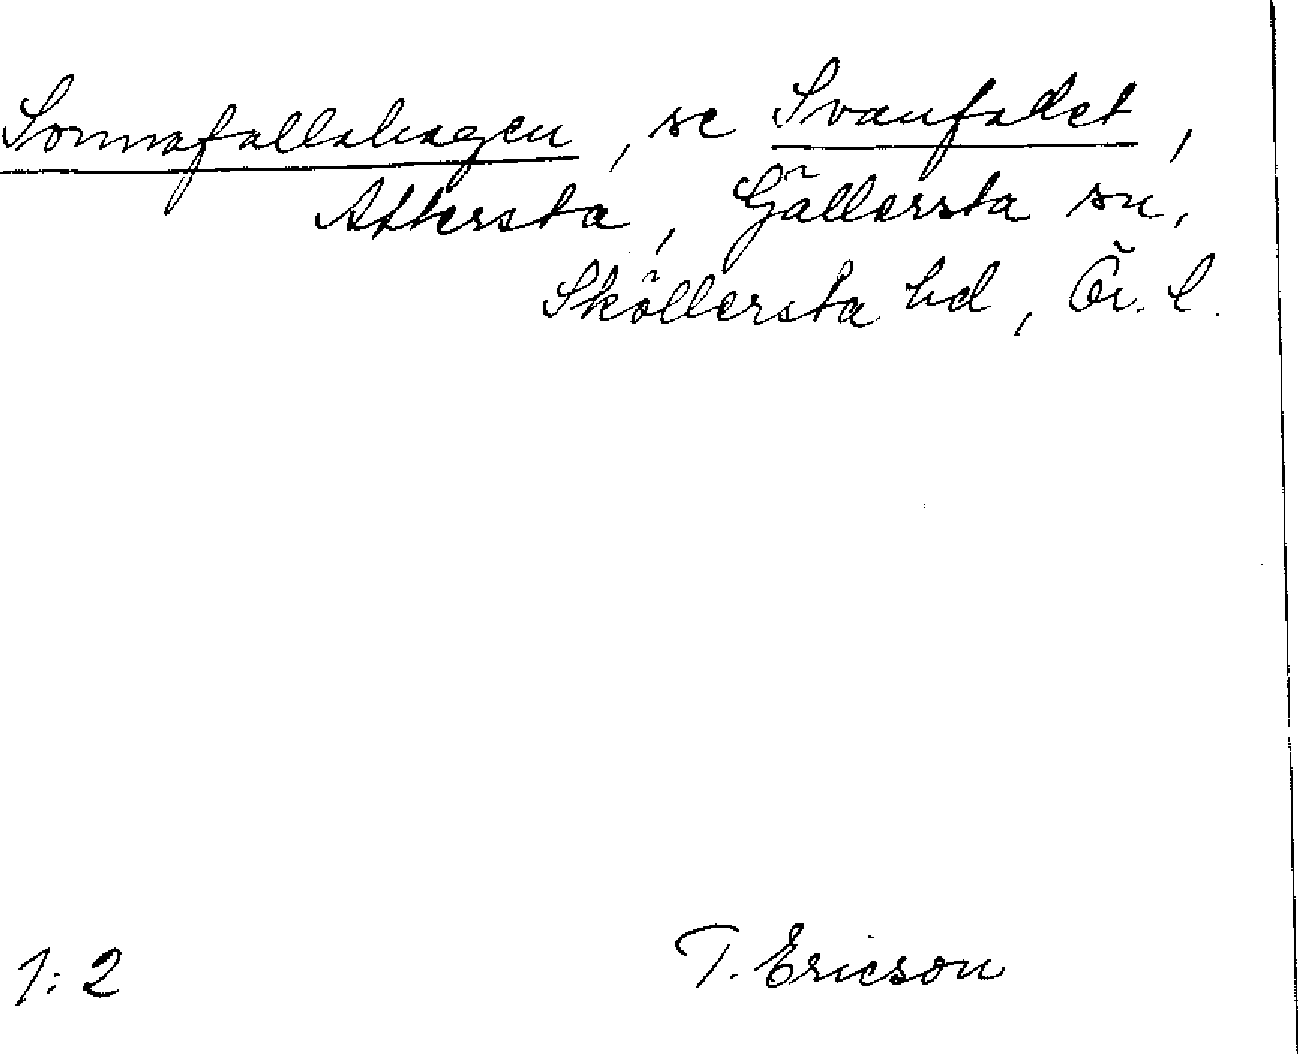 Sonnafallahagen, se Svanfallet,
Attersta, Gällersta sn,
Sköllersta hd, Ör. l.
1:2 T. Ericson